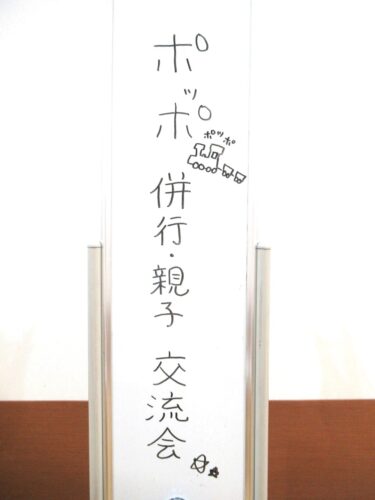 ポッポ
ポッポ
併行・親子
交流会